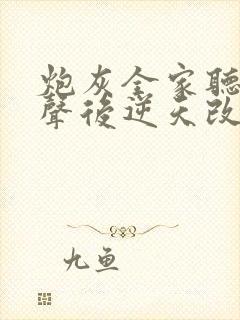 炮灰全家聽
聲後逆天改
九鱼